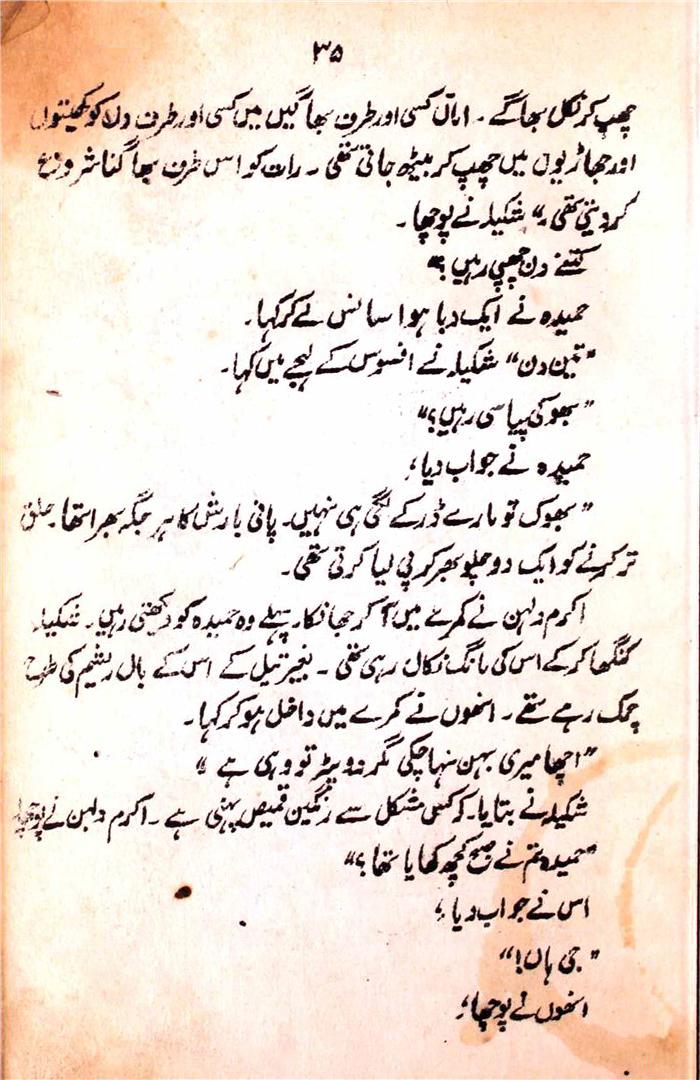 ۳۵
چھپ کر نکل بھاگے ۔ اماں کسی اور طرف بھاگیں میں کسی اور طرف دن کو کھیتوں
اور جھاڑیوں میں چھپ کر بیٹھ جاتی تھی ۔ رات کو اس طرف بھاگنا شروع
کر دیتی تھی ۔" شکیلہ نے پوچھا ۔
کتنے دن چھپی رہیں ؟"
حمیدہ نے ایک دبا ہوا سانس لے کر کہا ۔
"تین دن" شکیلہ نے افسوس کے لہجے میں کہا ۔
"بھوکی پیاسی رہیں ؟"
حمیدہ نے جواب دیا ؛
"بھوک تو مارے ڈر کے لگی ہی نہیں ۔ پانی بارش کا ہر جگہ بھرا تھا ۔ حلق
تر کرنے کو ایک دو چلو بھر کر پی لیا کرتی تھی ۔
اکرم دلہن نے کمرے میں آ کر جھانکا ۔ پہلے وہ حمیدہ کو دیکھتی رہیں ۔ شکیلہ
کنگھا کر کے اس کی مانگ نکال رہی تھی ۔ بغیر تیل کے اس کے بال ریشم کی طرح
چمک رہے تھے ۔ انھوں نے کمرے میں داخل ہو کر کہا ۔
"اچھا میری بہن نہا چکی مگر دوپٹہ تو وہی ہے "
شکیلہ نے بتایا ۔ کہ کس مشکل سے رنگین قمیص پہنی ہے ۔ اکرم دلہن نے پوچھا ۔
"حمیدہ تم نے صبح کچھ کھایا تھا ؟"
اس نے جواب دیا ؛
"جی ہاں !"
انھوں نے پوچھا ؛